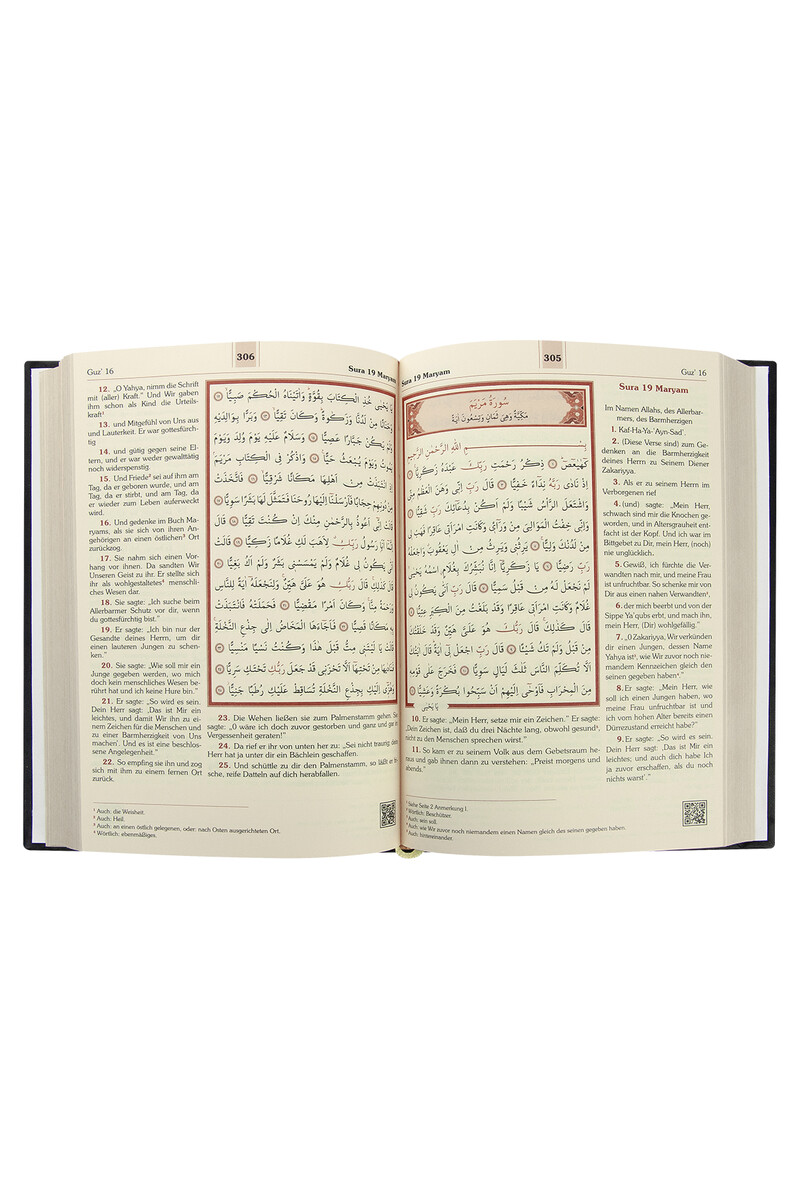 305
Guz' 16
Sura 19 Maryam
Sura 19 Maryam
Im Namen Allahs, des Allerbar-
mers, des Barmherzigen
1. Kaf-Ha-Ya-'Ayn-Sad¹.
2. (Diese Verse sind) zum Ge-
denken an die Barmherzigkeit
deines Herrn zu Seinem Diener
Zakariyya.
3. Als er zu seinem Herrn im
Verborgenen rief
4. (und) sagte: „Mein Herr,
schwach sind mir die Knochen ge-
worden, und in Altersgrauheit ent-
facht ist der Kopf. Und ich war im
Bittgebet zu Dir, mein Herr, (noch)
nie unglücklich.
5. Gewiß, ich fürchte die Ver-
wandten nach mir, und meine Frau
ist unfruchtbar. So schenke mir von
Dir aus einen nahen Verwandten²,
6. der mich beerbt und von der
Sippe Ya'qubs erbt, und mach ihn,
mein Herr, (Dir) wohlgefällig.“
7. „O Zakariyya, Wir verkünden
dir einen Jungen, dessen Name
Yahya ist³, wie Wir zuvor noch nie-
mandem Kennzeichen gleich den
seinen gegeben haben⁴.“
8. Er sagte: „Mein Herr, wie
soll ich einen Jungen haben, wo
meine Frau unfruchtbar ist und
ich vom hohen Alter bereits einen
Dürrezustand erreicht habe?“
9. Er sagte: „So wird es sein.
Dein Herr sagt: ‚Das ist Mir ein
leichtes, und auch dich habe Ich
ja zuvor erschaffen, als du noch
nichts warst‘.“
سُورَةُ مَرْيَمَ
مَكِّيَّةٌ وَهِيَ ثَمَانٍ وَتِسْعُونَ آيَةً
بِسْمِ اللّٰهِ الرَّحْمٰنِ الرَّحِيمِ
كٓهٰيٰعٓصٓ ۝ ذِكْرُ رَحْمَتِ رَبِّكَ عَبْدَهُ زَكَرِيَّا ۝
اِذْ نَادٰى رَبَّهُ نِدَٓاءً خَفِيًّا ۝ قَالَ رَبِّ اِنِّي وَهَنَ الْعَظْمُ مِنِّي
وَاشْتَعَلَ الرَّأْسُ شَيْبًا وَلَمْ اَكُنْ بِدُعَٓائِكَ رَبِّ شَقِيًّا ۝
وَاِنِّي خِفْتُ الْمَوَالِيَ مِنْ وَرَٓاءِي وَكَانَتِ امْرَاَتِي عَاقِرًا فَهَبْ لِي
مِنْ لَدُنْكَ وَلِيًّا ۝ يَرِثُنِي وَيَرِثُ مِنْ اٰلِ يَعْقُوبَ وَاجْعَلْهُ
رَبِّ رَضِيًّا ۝ يَا زَكَرِيَّٓا اِنَّا نُبَشِّرُكَ بِغُلَامٍ اسْمُهُ يَحْيٰى
لَمْ نَجْعَلْ لَهُ مِنْ قَبْلُ سَمِيًّا ۝ قَالَ رَبِّ اَنّٰى يَكُونُ لِي
غُلَامٌ وَكَانَتِ امْرَاَتِي عَاقِرًا وَقَدْ بَلَغْتُ مِنَ الْكِبَرِ عِتِيًّا ۝
قَالَ كَذٰلِكَ قَالَ رَبُّكَ هُوَ عَلَيَّ هَيِّنٌ وَقَدْ خَلَقْتُكَ
مِنْ قَبْلُ وَلَمْ تَكُ شَيْـًٔا ۝ قَالَ رَبِّ اجْعَلْ لِٓي اٰيَةً قَالَ اٰيَتُكَ
اَلَّا تُكَلِّمَ النَّاسَ ثَلٰثَ لَيَالٍ سَوِيًّا ۝ فَخَرَجَ عَلٰى قَوْمِهِ
مِنَ الْمِحْرَابِ فَاَوْحٰٓى اِلَيْهِمْ اَنْ سَبِّحُوا بُكْرَةً وَعَشِيًّا ۝
يَا يَحْيٰى
10. Er sagte: „Mein Herr, setze mir ein Zeichen.“ Er sagte:
„Dein Zeichen ist, daß du drei Nächte lang, obwohl gesund⁵,
nicht zu den Menschen sprechen wirst.“
11. So kam er zu seinem Volk aus dem Gebetsraum he-
raus und gab ihnen dann zu verstehen: „Preist morgens und
abends.“
¹ Siehe Seite 2 Anmerkung 1.
² Wörtlich: Beschützer.
Auch: sein soll.
Auch: wie Wir zuvor noch niemandem einen Namen gleich des seinen gegeben haben.
Auch: hintereinander.
306
Guz' 16
Sura 19 Maryam
12. „O Yahya, nimm die Schrift
mit (aller) Kraft.“ Und Wir gaben
ihm schon als Kind die Urteils-
kraft¹
13. und Mitgefühl von Uns aus
und Lauterkeit. Er war gottesfürch-
tig
14. und gütig gegen seine El-
tern, und er war weder gewalttätig
noch widerspenstig.
15. Und Friede² sei auf ihm am
Tag, da er geboren wurde, und am
Tag, da er stirbt, und am Tag, da
er wieder zum Leben auferweckt
wird.
16. Und gedenke im Buch Ma-
ryams, als sie sich von ihren An-
gehörigen an einen östlichen³ Ort
zurückzog.
17. Sie nahm sich einen Vor-
hang vor ihnen. Da sandten Wir
Unseren Geist zu ihr. Er stellte sich
ihr als wohlgestaltetes⁴ menschli-
ches Wesen dar.
18. Sie sagte: „Ich suche beim
Allerbarmer Schutz vor dir, wenn
du gottesfürchtig bist.“
19. Er sagte: „Ich bin nur der
Gesandte deines Herrn, um dir
einen lauteren Jungen zu schen-
ken.“
20. Sie sagte: „Wie soll mir ein
Junge gegeben werden, wo mich
doch kein menschliches Wesen be-
rührt hat und ich keine Hure bin.“
21. Er sagte: „So wird es sein.
Dein Herr sagt: ‚Das ist Mir ein
leichtes, und damit Wir ihn zu ei-
nem Zeichen für die Menschen und
zu einer Barmherzigkeit von Uns
machen‘. Und es ist eine beschlos-
sene Angelegenheit.“
22. So empfing sie ihn und zog
sich mit ihm zu einem fernen Ort
zurück.
يَا يَحْيٰى خُذِ الْكِتَابَ بِقُوَّةٍ وَاٰتَيْنَاهُ الْحُكْمَ صَبِيًّا ۝
وَحَنَانًا مِنْ لَدُنَّا وَزَكٰوةً وَكَانَ تَقِيًّا ۝ وَبَرًّا بِوَالِدَيْهِ
وَلَمْ يَكُنْ جَبَّارًا عَصِيًّا ۝ وَسَلَامٌ عَلَيْهِ يَوْمَ وُلِدَ وَيَوْمَ
يَمُوتُ وَيَوْمَ يُبْعَثُ حَيًّا ۝ وَاذْكُرْ فِي الْكِتَابِ مَرْيَمَ
اِذِ انْتَبَذَتْ مِنْ اَهْلِهَا مَكَانًا شَرْقِيًّا ۝ فَاتَّخَذَتْ
مِنْ دُونِهِمْ حِجَابًا فَاَرْسَلْنَٓا اِلَيْهَا رُوحَنَا فَتَمَثَّلَ لَهَا بَشَرًا سَوِيًّا ۝
قَالَتْ اِنِّٓي اَعُوذُ بِالرَّحْمٰنِ مِنْكَ اِنْ كُنْتَ تَقِيًّا ۝ قَالَ
اِنَّمَٓا اَنَا رَسُولُ رَبِّكِ لِاَهَبَ لَكِ غُلَامًا زَكِيًّا ۝ قَالَتْ
اَنّٰى يَكُونُ لِي غُلَامٌ وَلَمْ يَمْسَسْنِي بَشَرٌ وَلَمْ اَكُ بَغِيًّا ۝
قَالَ كَذٰلِكِ قَالَ رَبُّكِ هُوَ عَلَيَّ هَيِّنٌ وَلِنَجْعَلَهُ اٰيَةً لِلنَّاسِ
وَرَحْمَةً مِنَّا وَكَانَ اَمْرًا مَقْضِيًّا ۝ فَحَمَلَتْهُ فَانْتَبَذَتْ
بِهِ مَكَانًا قَصِيًّا ۝ فَاَجَٓاءَهَا الْمَخَاضُ اِلٰى جِذْعِ النَّخْلَةِ
قَالَتْ يَا لَيْتَنِي مِتُّ قَبْلَ هٰذَا وَكُنْتُ نَسْيًا مَنْسِيًّا ۝
فَنَادٰيهَا مِنْ تَحْتِهَٓا اَلَّا تَحْزَنِي قَدْ جَعَلَ رَبُّكِ تَحْتَكِ سَرِيًّا ۝
وَهُزِّٓي اِلَيْكِ بِجِذْعِ النَّخْلَةِ تُسَاقِطْ عَلَيْكِ رُطَبًا جَنِيًّا ۝
23. Die Wehen ließen sie zum Palmenstamm gehen. Sie
sagte: „O wäre ich doch zuvor gestorben und ganz und gar in
Vergessenheit geraten!“
24. Da rief er ihr von unten her zu: „Sei nicht traurig, dein
Herr hat ja unter dir ein Bächlein geschaffen.
25. Und schüttle zu dir den Palmenstamm, so läßt er fri-
sche, reife Datteln auf dich herabfallen.
¹ Auch: die Weisheit.
² Auch: Heil.
³ Auch: an einen östlich gelegenen, oder: nach Osten ausgerichteten Ort.
⁴ Wörtlich: ebenmäßiges.